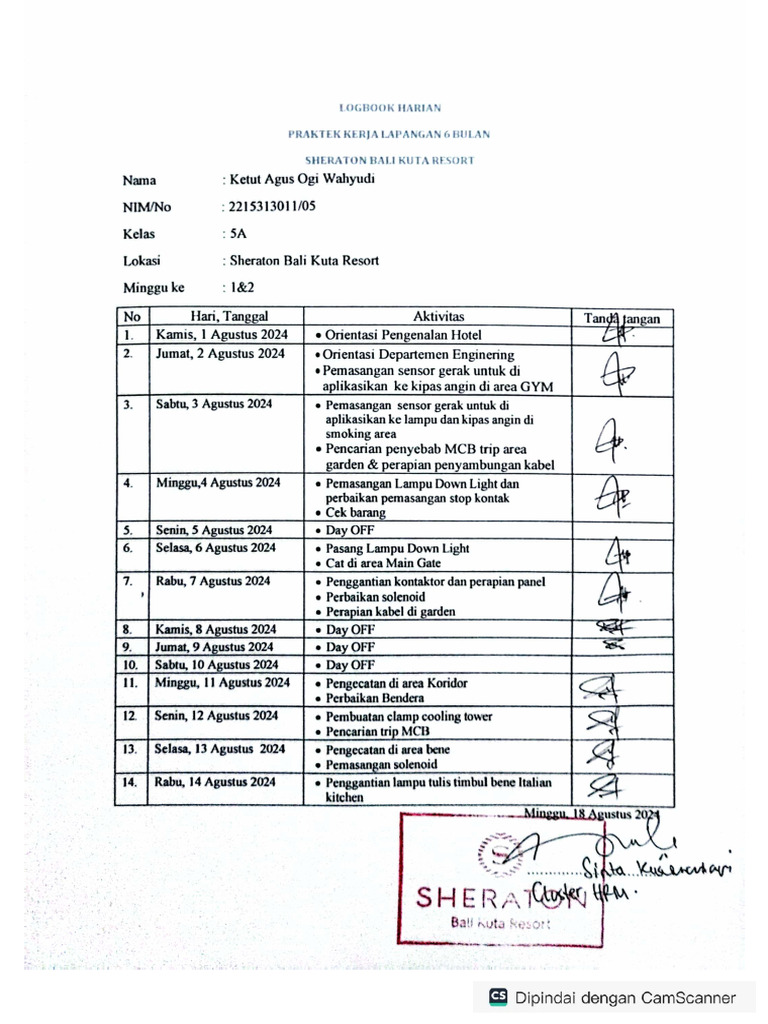 LOGBOOK HARIAN
PRAKTEK KERJA LAPANGAN 6 BULAN
SHERATON BALI KUTA RESORT
Nama : Ketut Agus Ogi Wahyudi
NIM/No : 2215313011/05
Kelas : 5A
Lokasi : Sheraton Bali Kuta Resort
Minggu ke : 1&2
No Hari, Tanggal Aktivitas Tanda tangan
1. Kamis, 1 Agustus 2024 • Orientasi Pengenalan Hotel
2. Jumat, 2 Agustus 2024 • Orientasi Departemen Enginering
• Pemasangan sensor gerak untuk di
aplikasikan ke kipas angin di area GYM
3. Sabtu, 3 Agustus 2024 • Pemasangan sensor gerak untuk di
aplikasikan ke lampu dan kipas angin di
smoking area
• Pencarian penyebab MCB trip area
garden & perapian penyambungan kabel
4. Minggu,4 Agustus 2024 • Pemasangan Lampu Down Light dan
perbaikan pemasangan stop kontak
• Cek barang
5. Senin, 5 Agustus 2024 • Day OFF
6. Selasa, 6 Agustus 2024 • Pasang Lampu Down Light
• Cat di area Main Gate
7. Rabu, 7 Agustus 2024 • Penggantian kontaktor dan perapian panel
• Perbaikan solenoid
• Perapian kabel di garden
8. Kamis, 8 Agustus 2024 • Day OFF
9. Jumat, 9 Agustus 2024 • Day OFF
10. Sabtu, 10 Agustus 2024 • Day OFF
11. Minggu, 11 Agustus 2024 • Pengecatan di area Koridor
• Perbaikan Bendera
12. Senin, 12 Agustus 2024 • Pembuatan clamp cooling tower
• Pencarian trip MCB
13. Selasa, 13 Agustus 2024 • Pengecatan di area bene
• Pemasangan solenoid
14. Rabu, 14 Agustus 2024 • Penggantian lampu tulis timbul bene Italian
kitchen
Minggu, 18 Agustus 2024
Cluster HRM.
SHERATON
Bali Kuta Resort
CS Dipindai dengan CamScanner